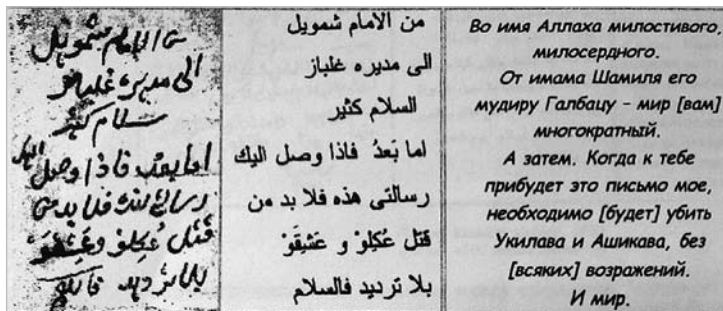 من الامام شمويل
الى مديره غلباز
سلام كثير
اما بعد فاذا وصل اليك
رسالتي هذه فلا بد من
قتل عُكِلَوْ وَ عَشِقَوْ
بلا ترديد فالسلام
من الامام شمويل
الى مديره غلباز
السلام كثير
اما بَعدُ فاذا وصل اليك
رسالتى هذه فلا بد من
قتل عُكِلَوْ و عَشِقَوْ
بلا ترديد فالسلام
Во имя Аллаха милостивого,
милосердного.
От имама Шамиля его
мудиру Галбацу – мир [вам]
многократный.
А затем. Когда к тебе
прибудет это письмо мое,
необходимо [будет] убить
Укилава и Ашикава, без
[всяких] возражений.
И мир.